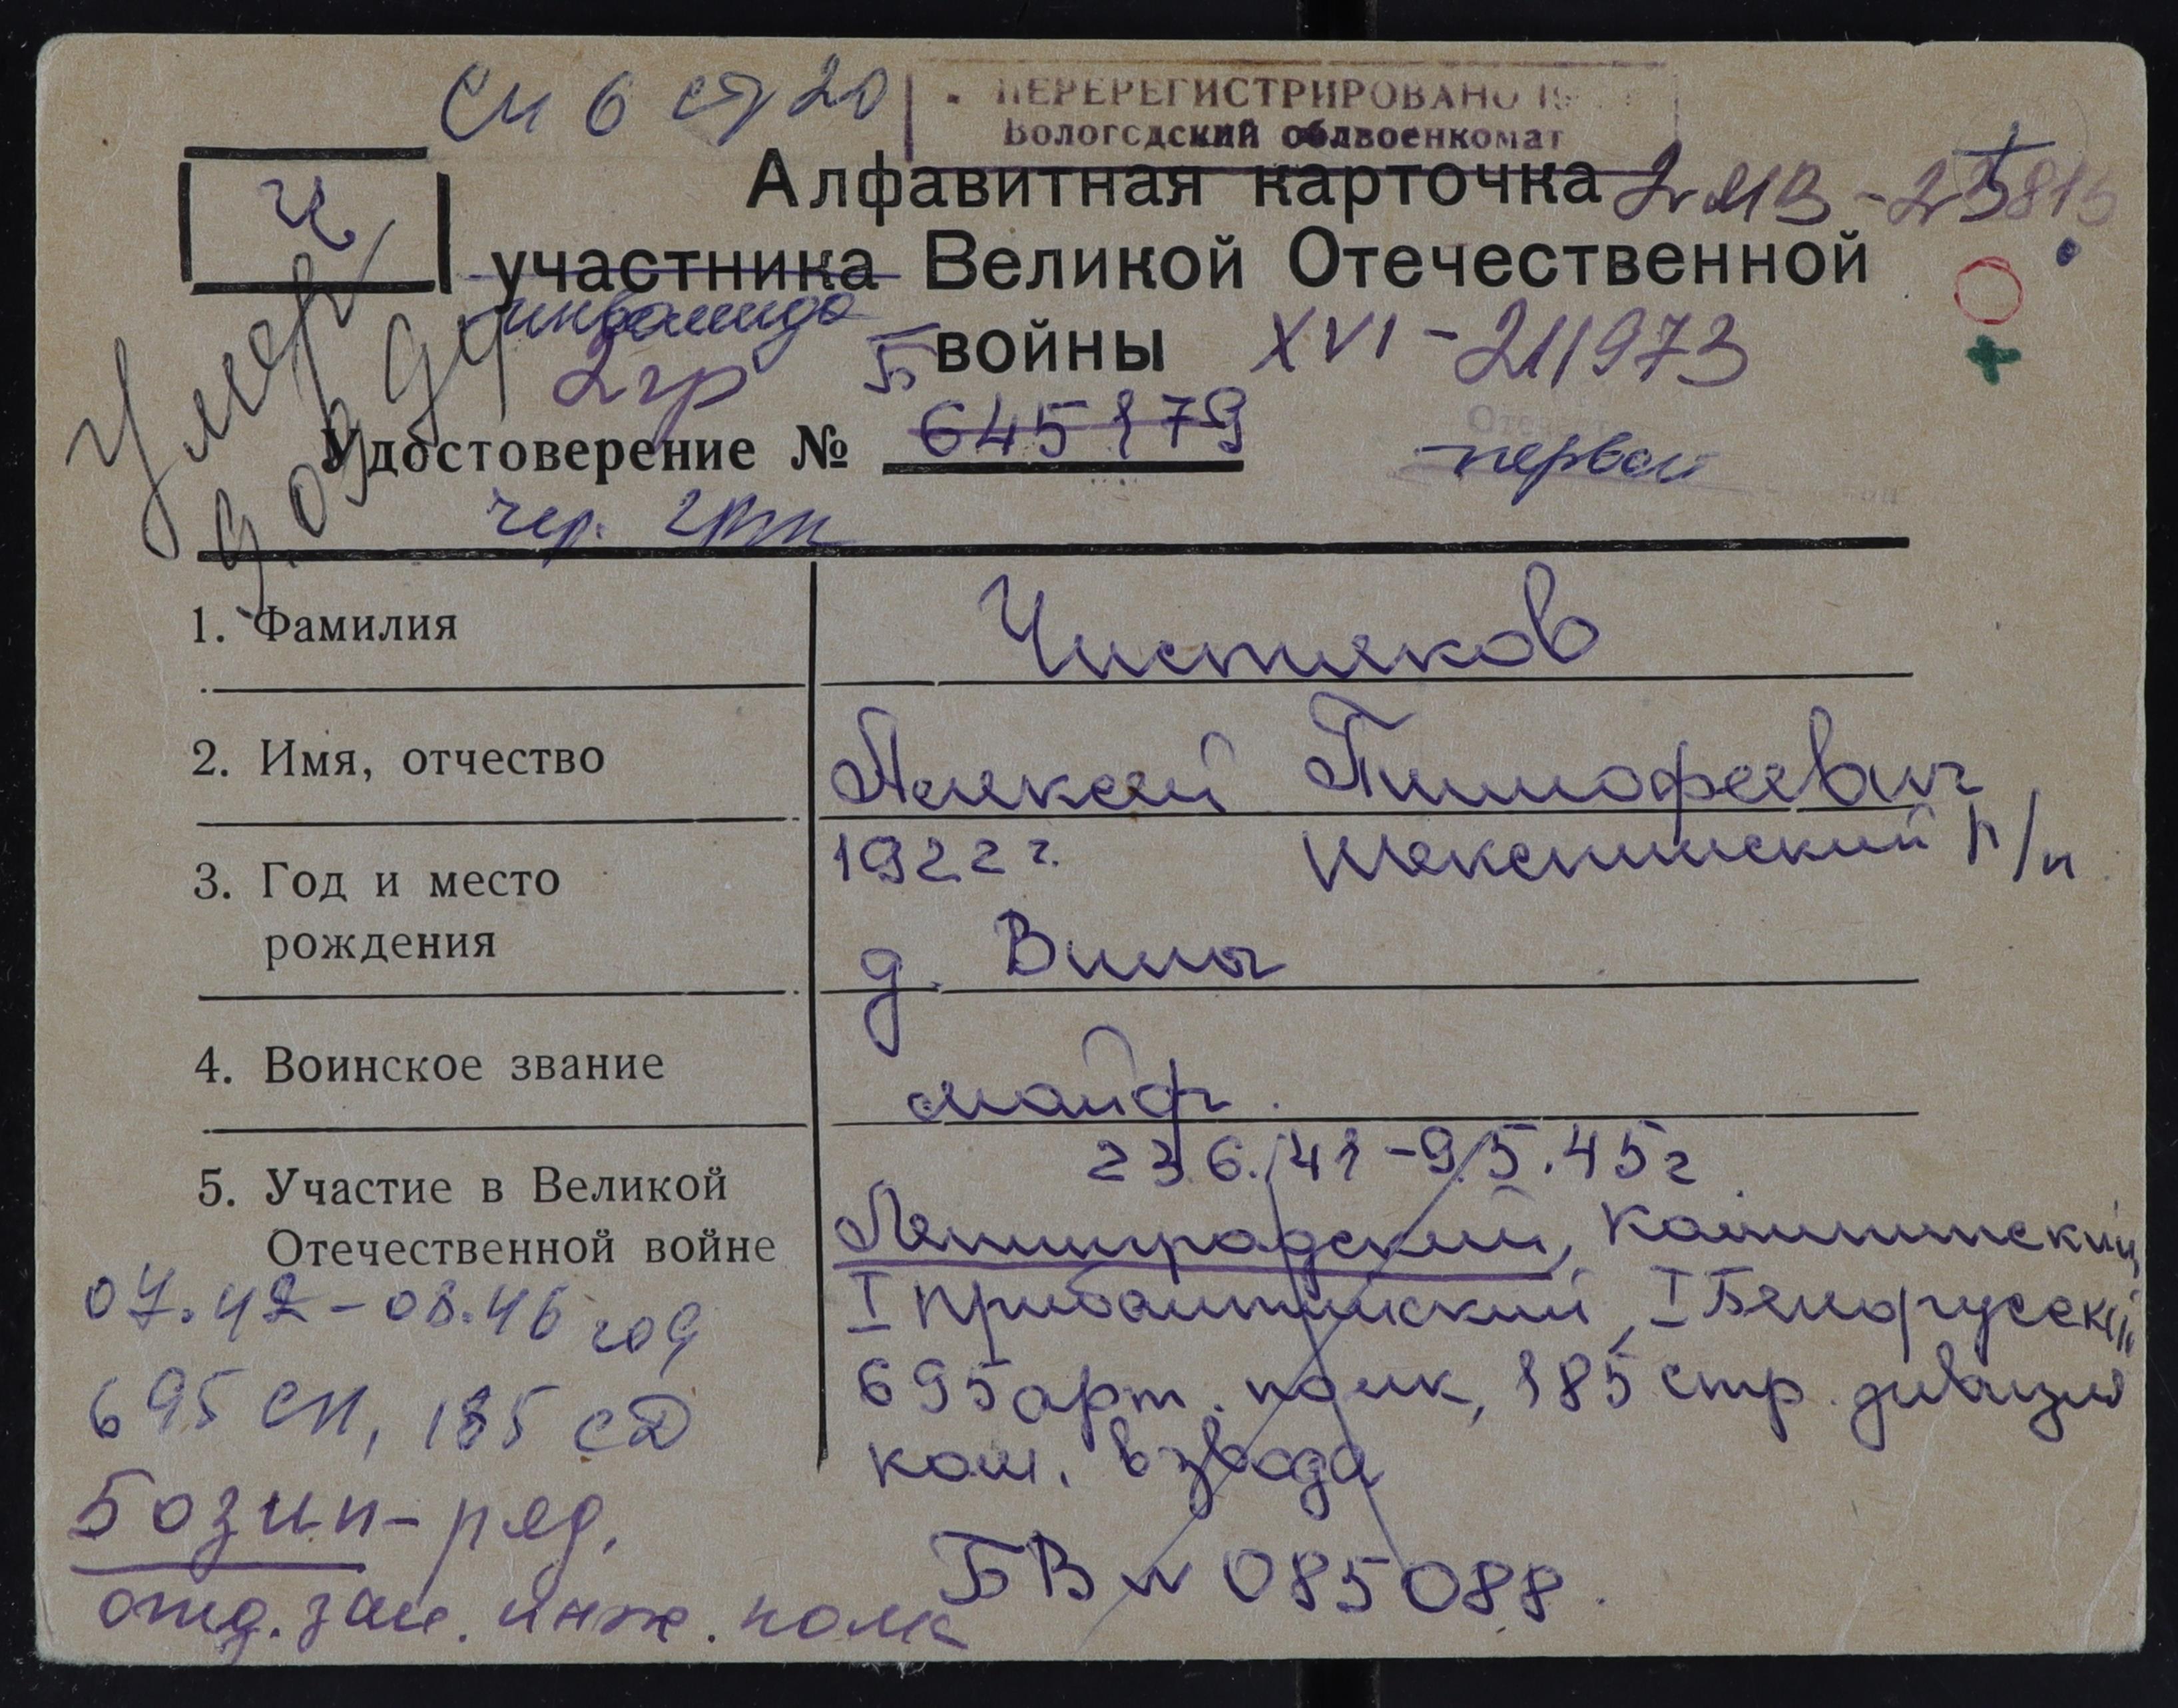 СИ 6 ст 20
ПЕРЕРЕГИСТРИРОВАНО 19
Вологодский облвоенкомат
Ч
Алфавитная карточка
участника Великой Отечественной
инвалида
войны XVI - 211973
2 гр Б
Удостоверение № 645179
первой
Умер
9.09.94
чер. грп
1. Фамилия Чистяков
2. Имя, отчество Алексей Тимофеевич
3. Год и место 1922 г. Шекснинский р/н
рождения д. Вины
4. Воинское звание
23.6.41-9.5.45г
5. Участие в Великой Ленинградский, Калининский,
Отечественной войне I Прибалтийский, I Белорусский
07.42-08.46 год 695 арт. полк, 185 стр. дивизия
695 СП, 185 СД ком. взвода
5 озип-ряд. БВ № 085088.
отд. зап. инж. полк